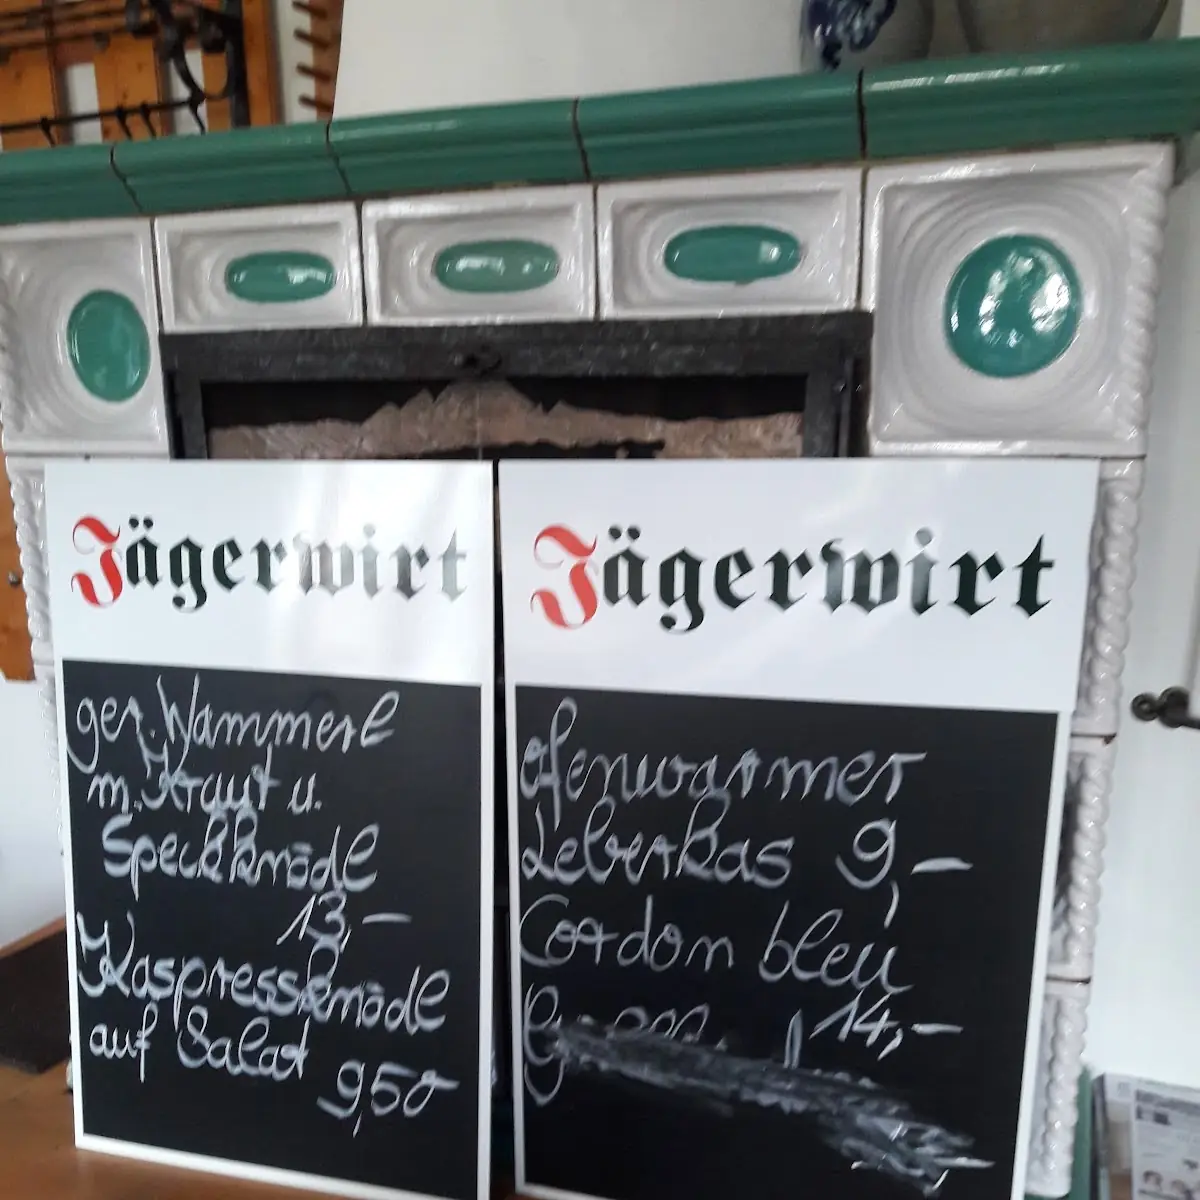 Jägerwirt
ger. Wammerl
m. Kraut u.
Speckknödl
13,-
Kaspressknödl
auf Salad
9,50
Jägerwirt
ofenwarmer
Leberkas 9,-
Cordon bleu
14,-